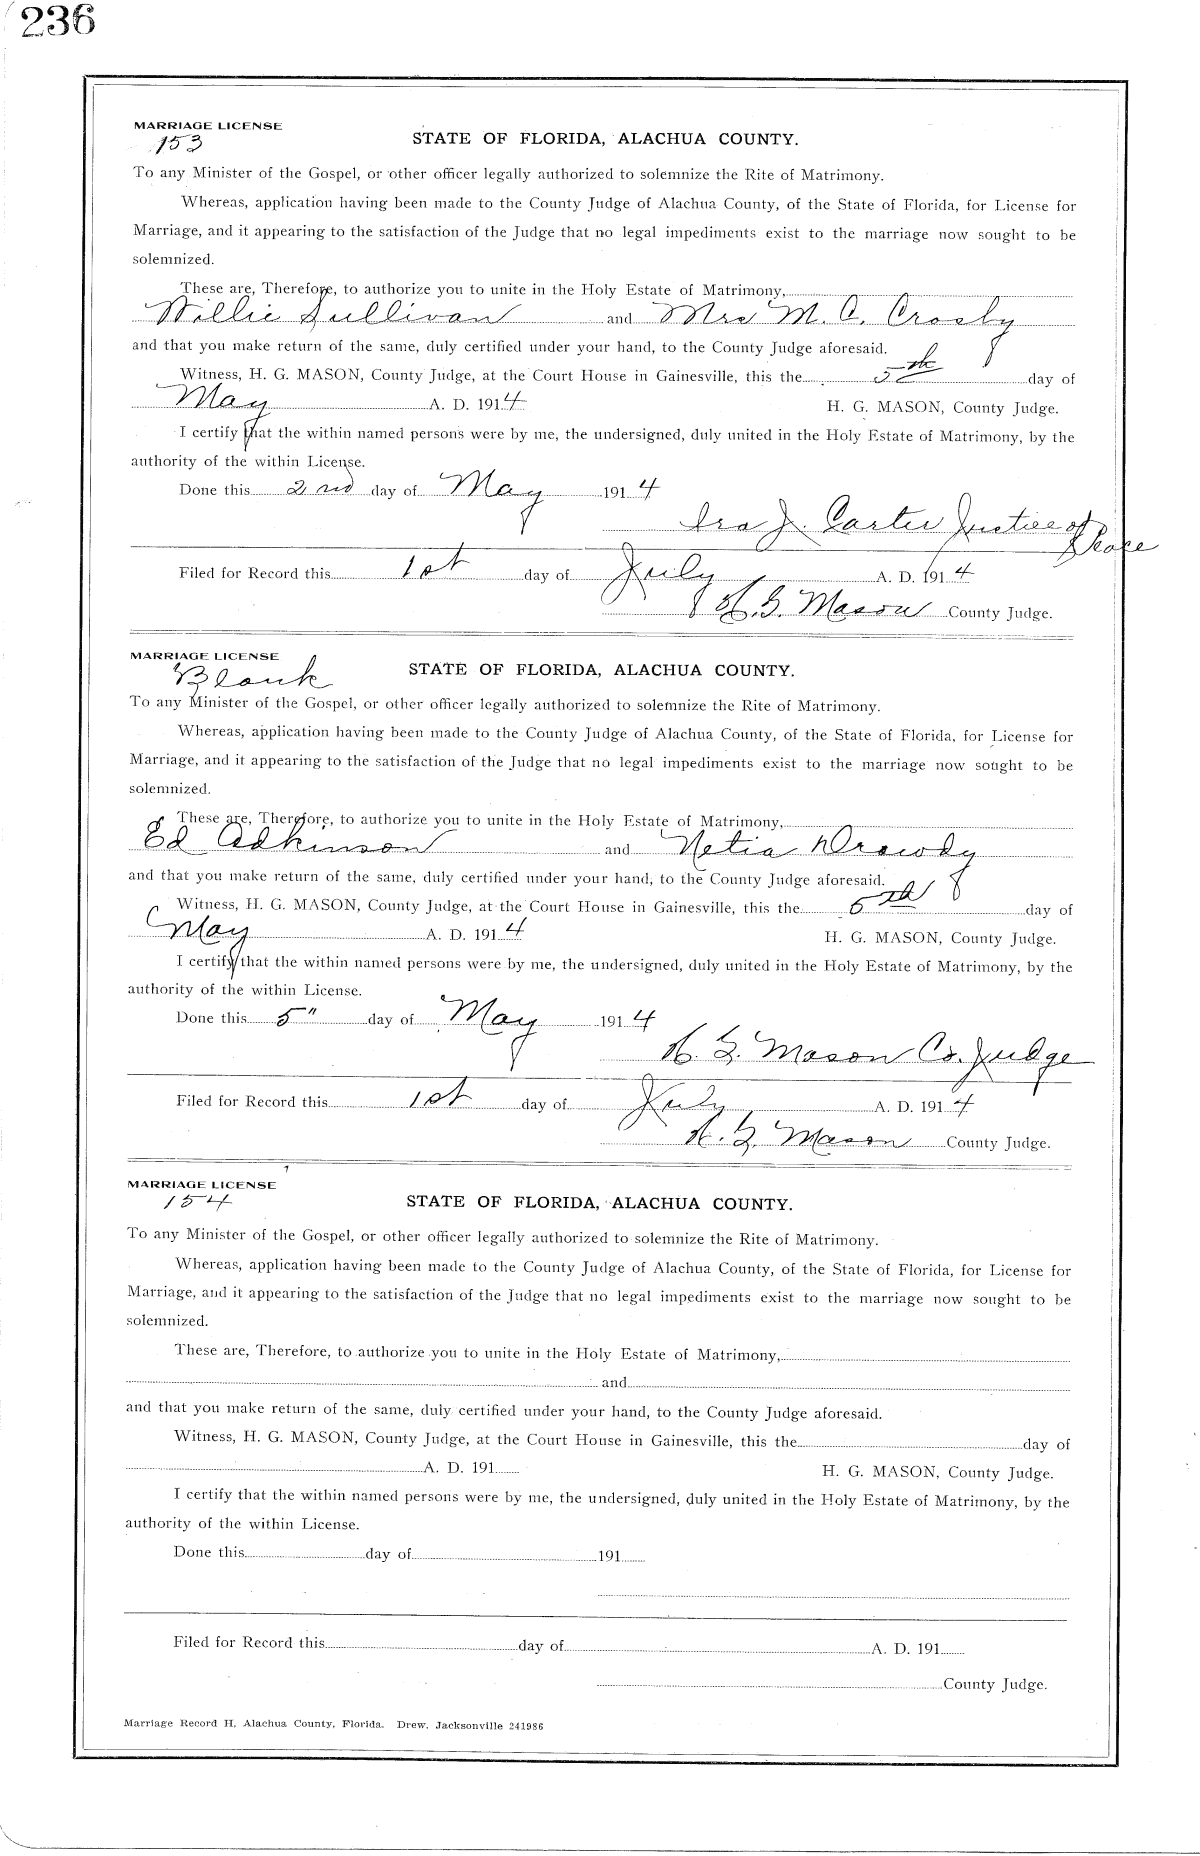 236
MARRIAGE LICENSE
153
STATE OF FLORIDA, ALACHUA COUNTY.
To any Minister of the Gospel, or other officer legally authorized to solemnize the Rite of Matrimony.
Whereas, application having been made to the County Judge of Alachua County, of the State of Florida, for License for
Marriage, and it appearing to the satisfaction of the Judge that no legal impediments exist to the marriage now sought to be
solemnized.
These are, Therefore, to authorize you to unite in the Holy Estate of Matrimony,
Willie Sullivan and Mrs M. C. Crosby
and that you make return of the same, duly certified under your hand, to the County Judge aforesaid.
Witness, H. G. MASON, County Judge, at the Court House in Gainesville, this the 5th day of
May A. D. 1914 H. G. MASON, County Judge.
I certify that the within named persons were by me, the undersigned, duly united in the Holy Estate of Matrimony, by the
authority of the within License.
Done this 2nd day of May 1914
Ira J. Carter Justice of
Peace
Filed for Record this 1st day of July A. D. 1914
H. G. Mason County Judge.
MARRIAGE LICENSE
Blank
STATE OF FLORIDA, ALACHUA COUNTY.
To any Minister of the Gospel, or other officer legally authorized to solemnize the Rite of Matrimony.
Whereas, application having been made to the County Judge of Alachua County, of the State of Florida, for License for
Marriage, and it appearing to the satisfaction of the Judge that no legal impediments exist to the marriage now sought to be
solemnized.
These are, Therefore, to authorize you to unite in the Holy Estate of Matrimony,
Ed Adkinson and Netia Drowdy
and that you make return of the same, duly certified under your hand, to the County Judge aforesaid.
Witness, H. G. MASON, County Judge, at the Court House in Gainesville, this the 5th day of
May A. D. 1914 H. G. MASON, County Judge.
I certify that the within named persons were by me, the undersigned, duly united in the Holy Estate of Matrimony, by the
authority of the within License.
Done this 5" day of May 1914
H. G. Mason Co. Judge
Filed for Record this 1st day of July A. D. 1914
H. G. Mason County Judge.
MARRIAGE LICENSE
154
STATE OF FLORIDA, ALACHUA COUNTY.
To any Minister of the Gospel, or other officer legally authorized to solemnize the Rite of Matrimony.
Whereas, application having been made to the County Judge of Alachua County, of the State of Florida, for License for
Marriage, and it appearing to the satisfaction of the Judge that no legal impediments exist to the marriage now sought to be
solemnized.
These are, Therefore, to authorize you to unite in the Holy Estate of Matrimony,
and
and that you make return of the same, duly certified under your hand, to the County Judge aforesaid.
Witness, H. G. MASON, County Judge, at the Court House in Gainesville, this the day of
A. D. 191 H. G. MASON, County Judge.
I certify that the within named persons were by me, the undersigned, duly united in the Holy Estate of Matrimony, by the
authority of the within License.
Done this day of 191
Filed for Record this day of A. D. 191
County Judge.
Marriage Record H, Alachua County, Florida. Drew, Jacksonville 241986